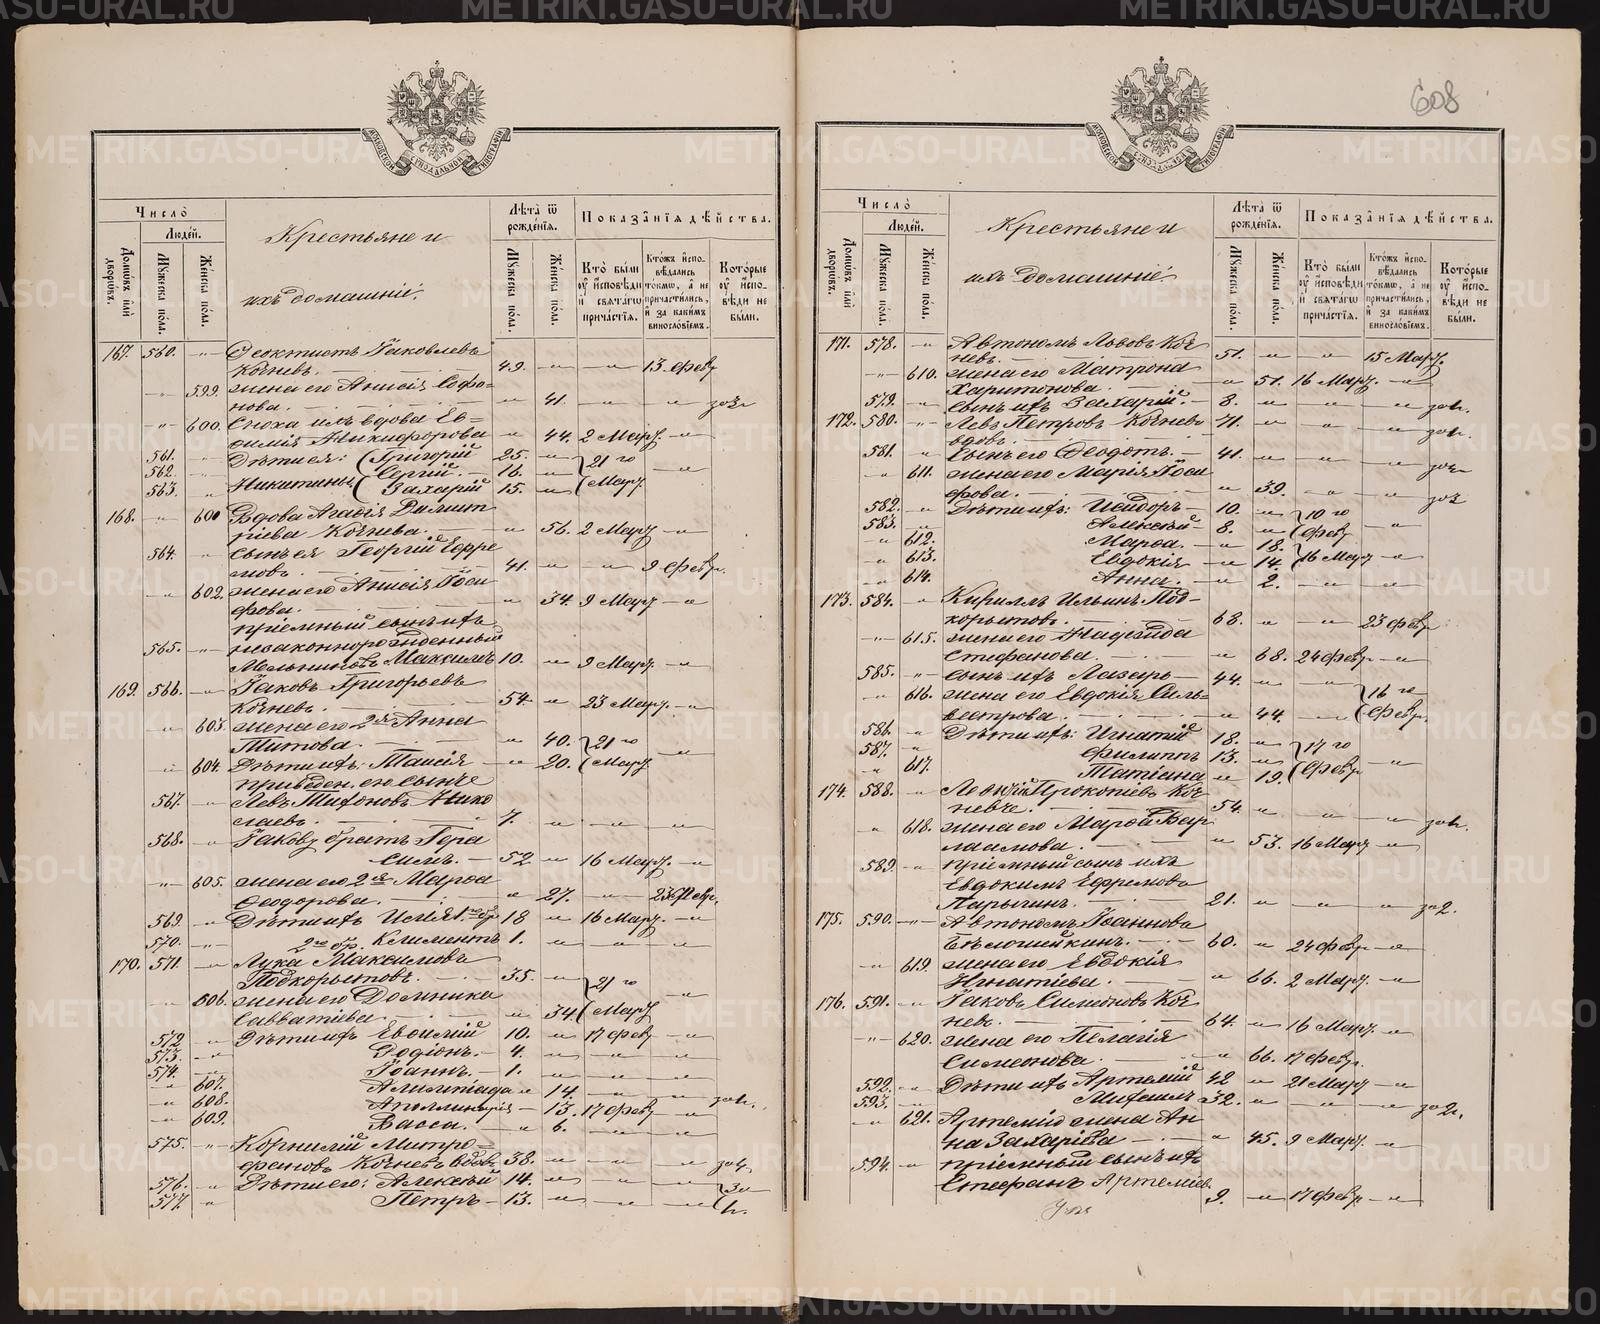 608
Число̀
Людей.
Домѡвъ или дворѡвъ.
Мꙋжеска пола.
Женска пола.
Крестьяне и
ихъ домашніе.
Лѣта̀ ѿ рожденїя.
Мꙋжеска пола.
Женска пола.
Показанїя дѣйства.
Кто̀ были ꙋ исповѣди и свѧтагѡ причастїя.
Кто́жъ исповѣдались то́кмѡ, а не причастились, и за какимъ винословїемъ.
Кото́рые ꙋ исповѣди не были.
167. 560. -"- Ѳеоктистъ Іаковлевъ
Кочневъ. 49. -"- -"- 13. Февр
-"- 599. жена его Анисія Софо=
нова. -"- 41. -"- -"- зок
-"- 600. Сноха ихъ вдова Ев=
ѳимія Никифорова -"- 44. 2 Март. -"-
561. -"- Дѣти ея: Григорій 25. -"- 21 го
562. -"- Никитины Сергій. 16. -"- -"-
563. -"- Захарій 15. -"- Март
168. -"- 601 Вдова Агаѳія Димит
ріева Кочнева. -"- 56. 2 Март -"-
564. -"- сынъ ея Георгій Ефре
мовъ. 41. -"- -"- 9 Февр.
-"- 602. жена его Анисія Іоси
фова. -"- 34. 9 Март -"-
пріемный сынъ ихъ
незаконнорожденный
565. -"- Мельниковъ Максимъ 10. -"- 9 Март. -"-
169. 566. -"- Іаковъ Григорьевъ
Кочневъ. 54. -"- 23 Март. -"-
-"- 603. жена его 2я Анна
Титова. -"- 40. 21 го
-"- 604. Дѣти ихъ: Таисія -"- 20. Март. -"-
приведен. его сынъ
567. -"- Левъ Тихоновъ Нико
лаевъ. 7. -"- -"- -"-
568. -"- Іакову братъ Гера
симъ. 52 -"- 16 Март. -"-
-"- 605. жена его 2я Марѳа
Ѳеодорова. -"- 27. -"- 23 Февр.
569. -"- Дѣти ихъ Илія 1. бр 18 -"- 16 Март. -"-
570. -"- 2го бр. Климентъ 1. -"- -"- -"-
170. 571. -"- Лука Максимовъ
Подкорытовъ. 35. -"- 21 го
-"- 606. жена его Домника
Савватіева. -"- 34 Март -"-
572 -"- Дѣти ихъ Евѳимій 10. -"- 17 Февр -"-
573. -"- Родіонъ. 4. -"- -"- -"-
574. -"- Іоаннъ. 1. -"- -"- -"-
-"- 607. Алимпіада -"- 14. -"- -"- зок.
-"- 608. Аполлинарія -"- 13. 17 Февр -"-
-"- 609. Васса. -"- 6. -"- -"-
575. -"- Корнилій Митро=
фановъ Кочневъ вдовъ 38. -"- -"- -"- зок
576. -"- Дѣти его: Алексѣй 14. -"- -"- -"- зо
577. -"- Петръ 13. -"- -"- -"- к.
Число̀
Людей.
Домѡвъ или дворѡвъ.
Мꙋжеска пола.
Женска пола.
Крестьяне и
ихъ домашніе.
Лѣта̀ ѿ рожденїя.
Мꙋжеска пола.
Женска пола.
Показанїя дѣйства.
Кто̀ были ꙋ исповѣди и свѧтагѡ причастїя.
Кто́жъ исповѣдались то́кмѡ, а не причастились, и за какимъ винословїемъ.
Кото́рые ꙋ исповѣди не были.
171. 578. -"- Автономъ Львовъ Коч
невъ. 51. -"- -"- 15 Март.
-"- 610. жена его Матрона
Харитонова. -"- 51. 16 Март. -"-
579. -"- сынъ ихъ Захарій. 8. -"- -"- -"- зок.
172. 580. -"- Левъ Петровъ Кочневъ 71. -"- -"- -"- зок.
вдовъ.
581. -"- Сынъ его Ѳеодотъ. 41. -"- -"- -"- зок
-"- 611. жена его Марія Іоси
фова. -"- 39. -"- -"- зок
582. -"- Дѣти ихъ: Исидоръ 10. -"- 10 го
583. -"- Алексѣй 8. -"- Февр -"-
-"- 612. Марѳа. -"- 18.
-"- 613. Евдокія -"- 14. 16 Март -"-
-"- 614. Анна. -"- 2. -"- -"-
173. 584. -"- Кириллъ Ильинъ Под=
корытовъ. 68. -"- -"- 23 Февр
-"- 615. жена его Надежда
Стефанова. -"- 68. 24 Февр -"-
585. -"- сынъ ихъ Лазарь 44. -"- -"- 16 го
-"- 616. жена его Евдокія Силь=
вестрова. -"- 44. -"- Февр.
586. -"- Дѣти ихъ: Игнатій 18. -"- 17 го
587. -"- Филиппъ 13. -"- -"-
-"- 617. Татіана -"- 19. Февр
174. 588. -"- Леонтій Прокопіевъ Коч
невъ. 54. -"- -"- -"- зок.
-"- 618. жена его Марѳа Вар
лаамова. -"- 53. 16 Март -"-
589. -"- пріемный сынъ ихъ
Евдокимъ Ефремовъ
Парыгинъ. 21. -"- -"- -"- зо 2.
175. 590. -"- Автономъ Іоанновъ
Бѣлошейкинъ. 60. -"- 24 Февр -"-
-"- 619. жена его Евдокія
Игнатіева. -"- 66. 2 Март. -"-
176. 591. -"- Іаковъ Симеоновъ Коч
невъ. 64. -"- 16 Март. -"-
-"- 620. жена его Пелагія
Симеонова. -"- 66. 17 Февр.
592. -"- Дѣти ихъ Артемій 42 -"- 21 Март -"-
593. -"- Михаилъ 32. -"- -"- -"- зо 2.
-"- 621. Артемію жена Ан=
на Захаріева -"- 45. 9 Март. -"-
594. -"- пріемный сынъ ихъ
Стефанъ Артеміев 9. -"- 17 Февр. -"-
METRIKI.GASO-URAL.RU